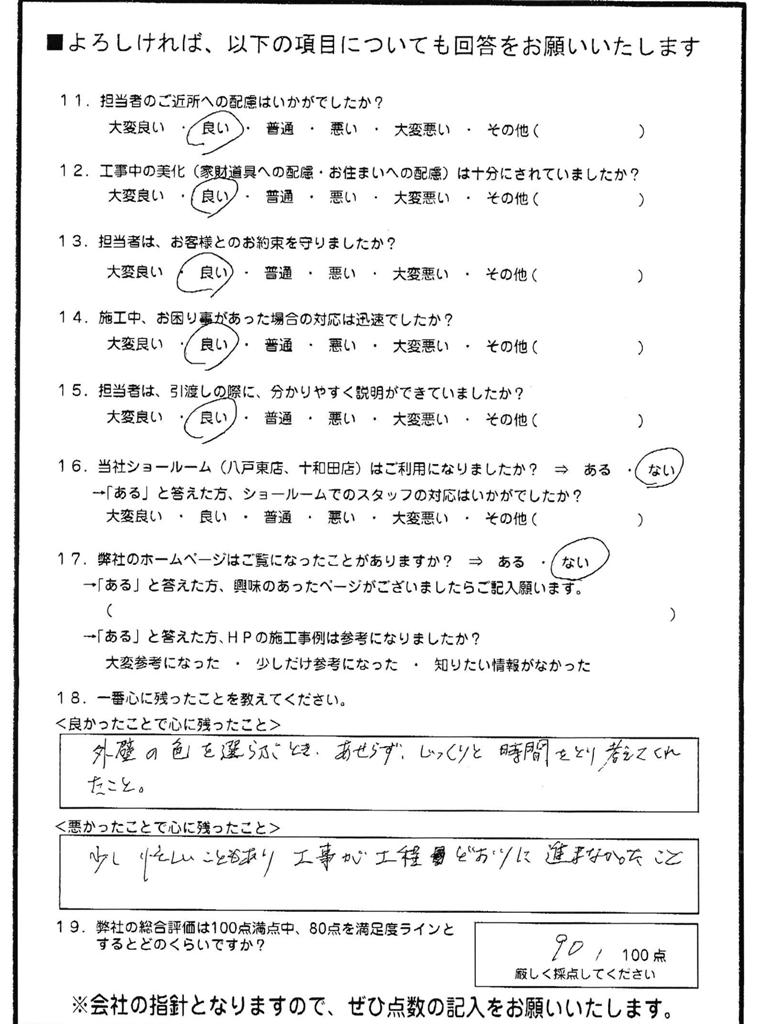 ■よろしければ、以下の項目についても回答をお願いいたします
11．担当者のご近所への配慮はいかがでしたか？
大変良い ・ 良い ・ 普通 ・ 悪い ・ 大変悪い ・ その他（ ）
12．工事中の美化（家財道具への配慮・お住まいへの配慮）は十分にされていましたか？
大変良い ・ 良い ・ 普通 ・ 悪い ・ 大変悪い ・ その他（ ）
13．担当者は、お客様とのお約束を守りましたか？
大変良い ・ 良い ・ 普通 ・ 悪い ・ 大変悪い ・ その他（ ）
14．施工中、お困り事があった場合の対応は迅速でしたか？
大変良い ・ 良い ・ 普通 ・ 悪い ・ 大変悪い ・ その他（ ）
15．担当者は、引渡しの際に、分かりやすく説明ができていましたか？
大変良い ・ 良い ・ 普通 ・ 悪い ・ 大変悪い ・ その他（ ）
16．当社ショールーム（八戸東店、十和田店）はご利用になりましたか？ ⇒ ある ・ ない
→「ある」と答えた方、ショールームでのスタッフの対応はいかがでしたか？
大変良い ・ 良い ・ 普通 ・ 悪い ・ 大変悪い ・ その他（ ）
17．弊社のホームページはご覧になったことがありますか？ ⇒ ある ・ ない
→「ある」と答えた方、興味のあったページがございましたらご記入願います。
（ ）
→「ある」と答えた方、ＨＰの施工事例は参考になりましたか？
大変参考になった ・ 少しだけ参考になった ・ 知りたい情報がなかった
18．一番心に残ったことを教えてください。
＜良かったことで心に残ったこと＞
外壁の色を選らぶとき、あせらず、じっくりと時間をとり考えてくれ
たこと。
＜悪かったことで心に残ったこと＞
少し忙しいこともあり 工事が工程どおりに進まなかったこと
19．弊社の総合評価は100点満点中、80点を満足度ラインと
するとどのくらいですか？
90 / 100点
厳しく採点してください
※会社の指針となりますので、ぜひ点数の記入をお願いいたします。